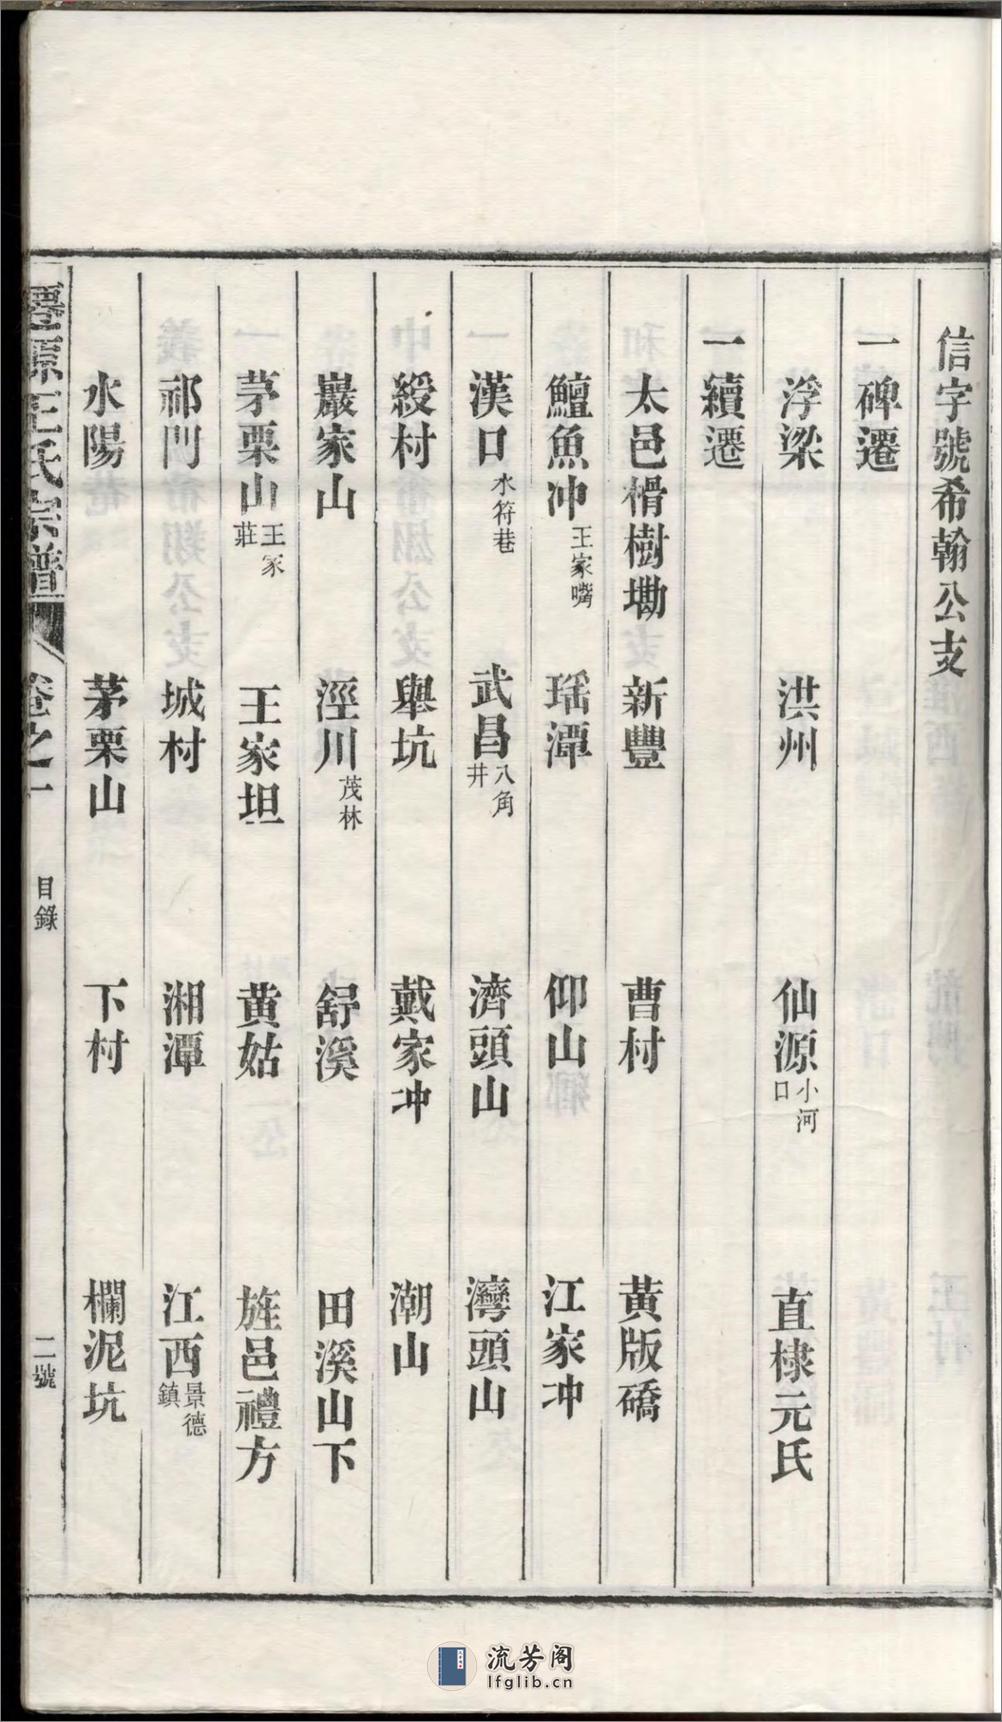 信字號希翰公支
一碑遷
浮梁 洪州 仙源小河口 直棣元氏
一續遷
太邑榾樹墈 新豐 曹村 黃版礄
鱣魚冲王家嘴 瑶潭 仰山 江家冲
漢口水符巷 武昌八角井 濟頭山 灣頭山
綬村 舉坑 戴家冲 潮山
巖家山 涇川茂林 舒溪 田溪山下
茅栗山王家莊 王家坦 黄姑 旌邑禮方
祁門 城村 湘潭 江西景德鎮
水陽 茅栗山 下村 欄泥坑
遷源王氏宗譜 卷之一 目錄 二號
流芳阁
lfglib.cn